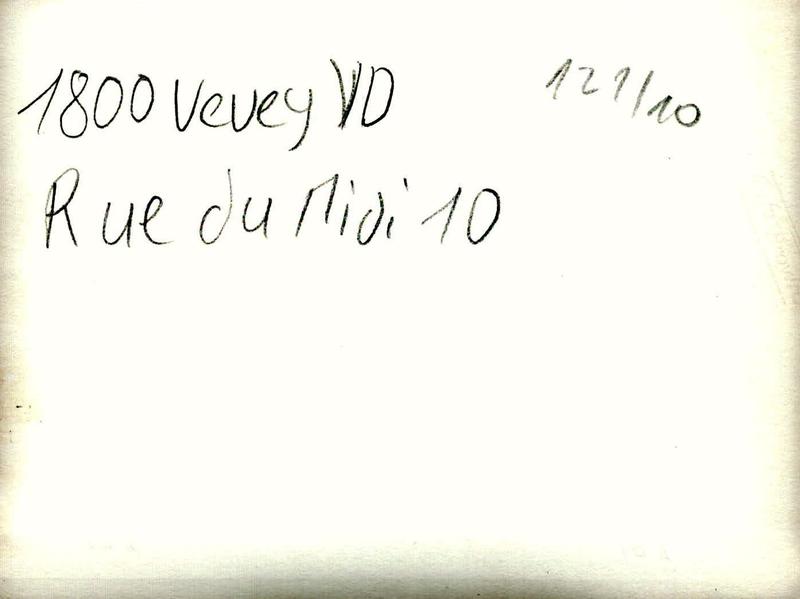 1800 Vevey VD
121/10
Rue du Midi 10